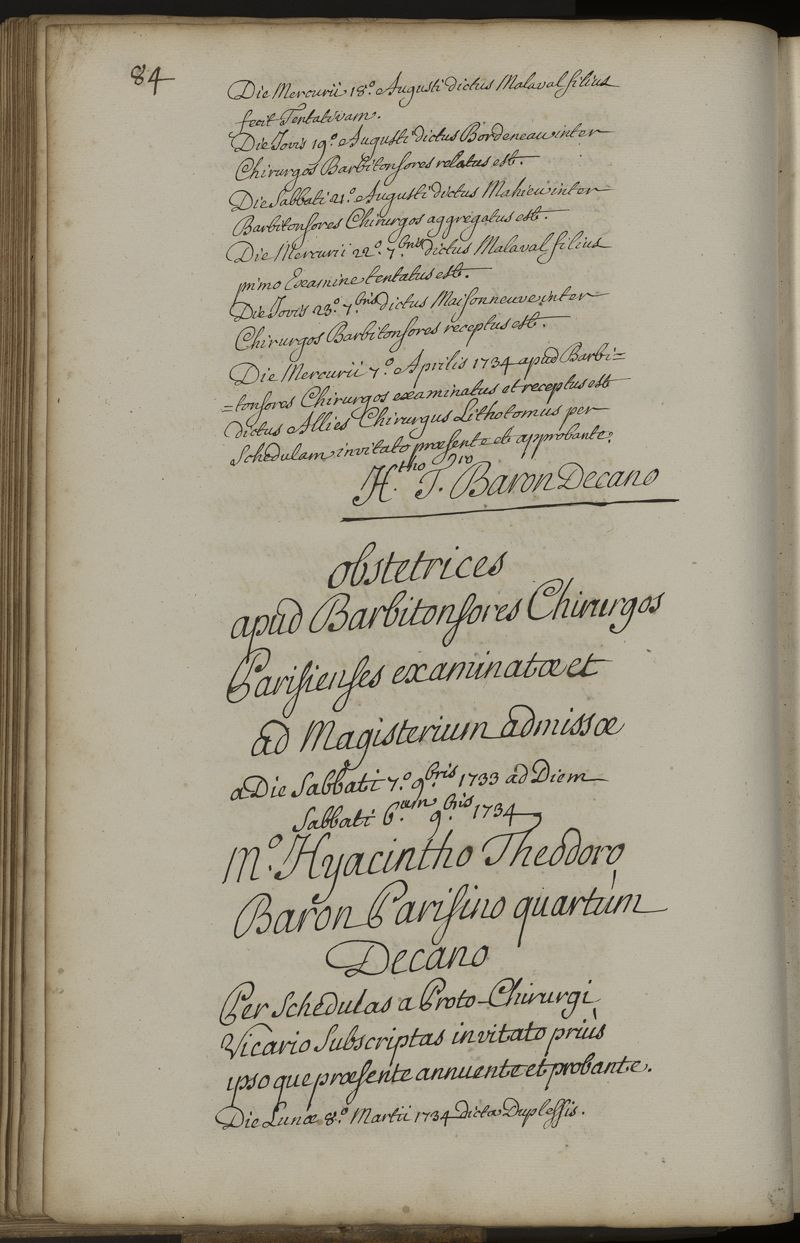 84
Die Mercurii 18.º Augusti dictus Malaval filius
fecit Tentativam.
Die Jovis 19.º Augusti dictus Bordeneau inter
Chirurgos Barbitonsores relatus est.
Die Sabbati 21.º Augusti dictus Mahieu inter
Barbitonsores Chirurgos aggregatus est.
Die Mercurii 22.º 7.bris dictus Malaval filius
primo Examine tentatus est.
Die Jovis 23.º 7.bris dictus Maisonneuve inter
Chirurgos Barbitonsores receptus est.
Die Mercurii 7.º Aprilis 1734 apud Barbi=
=tonsores Chirurgos examinatus et receptus est
dictus Allies Chirurgus Lithotomus per
Schedulam invitato præsente et approbante.
H.tho T.oro Baron Decano
Obstetrices
apud Barbitonsores Chirurgos
Parisienses examinatæ et
ad Magisterium admissæ
a Die Sabbati 7.º 9.bris 1733 ad Diem
Sabbati 6.am 9.bris 1734
M.º Hyacintho Theodoro
Baron Parisino quartùm
Decano
Per Schedulas a Proto-Chirurgi
Vicario Subscriptas invitato priùs
ipsoque præsente annuente et probante.
Die Lunæ 8.º Martii 1734 dicta Duplessis.